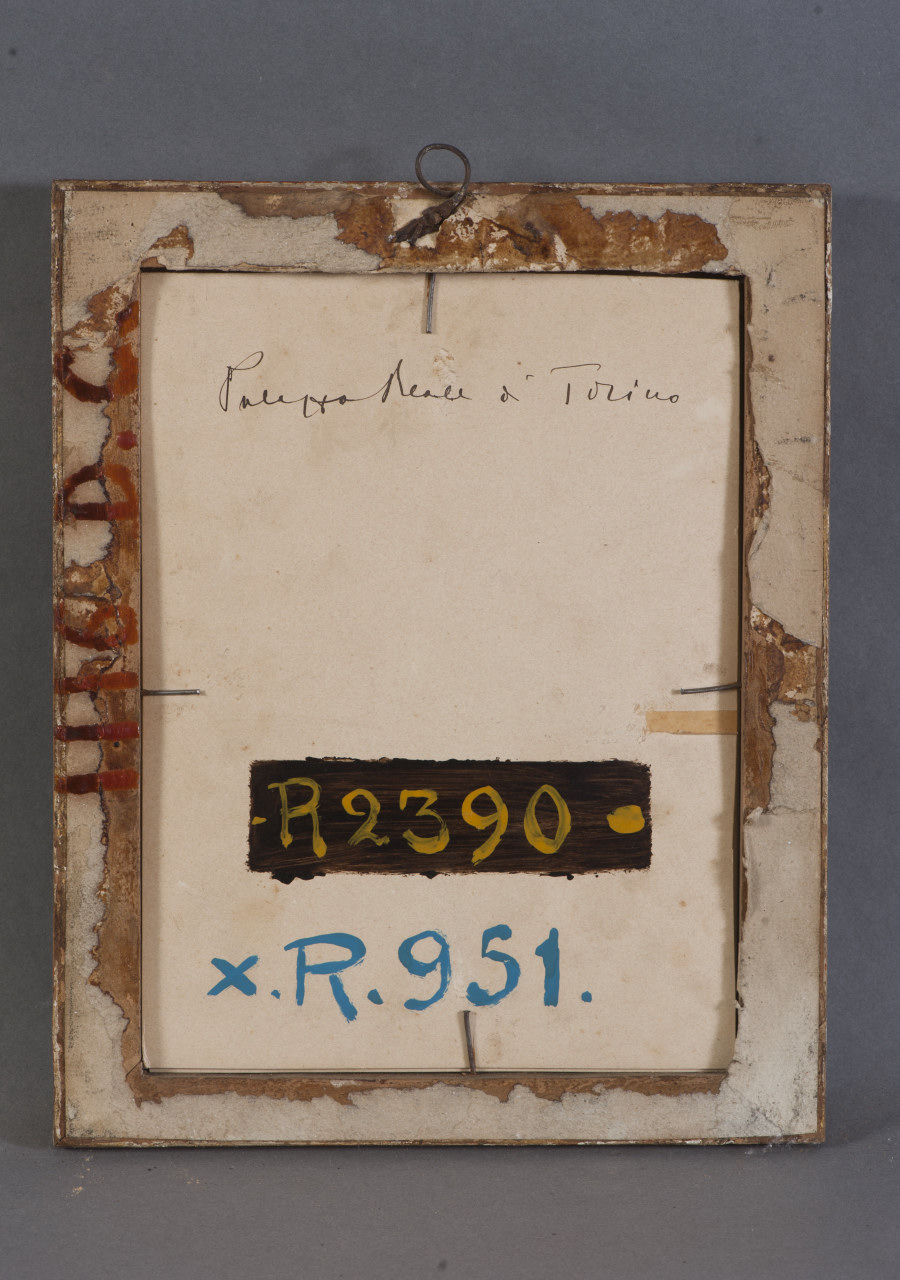 Palazzo Reale di Torino
R2390
x.R.951.